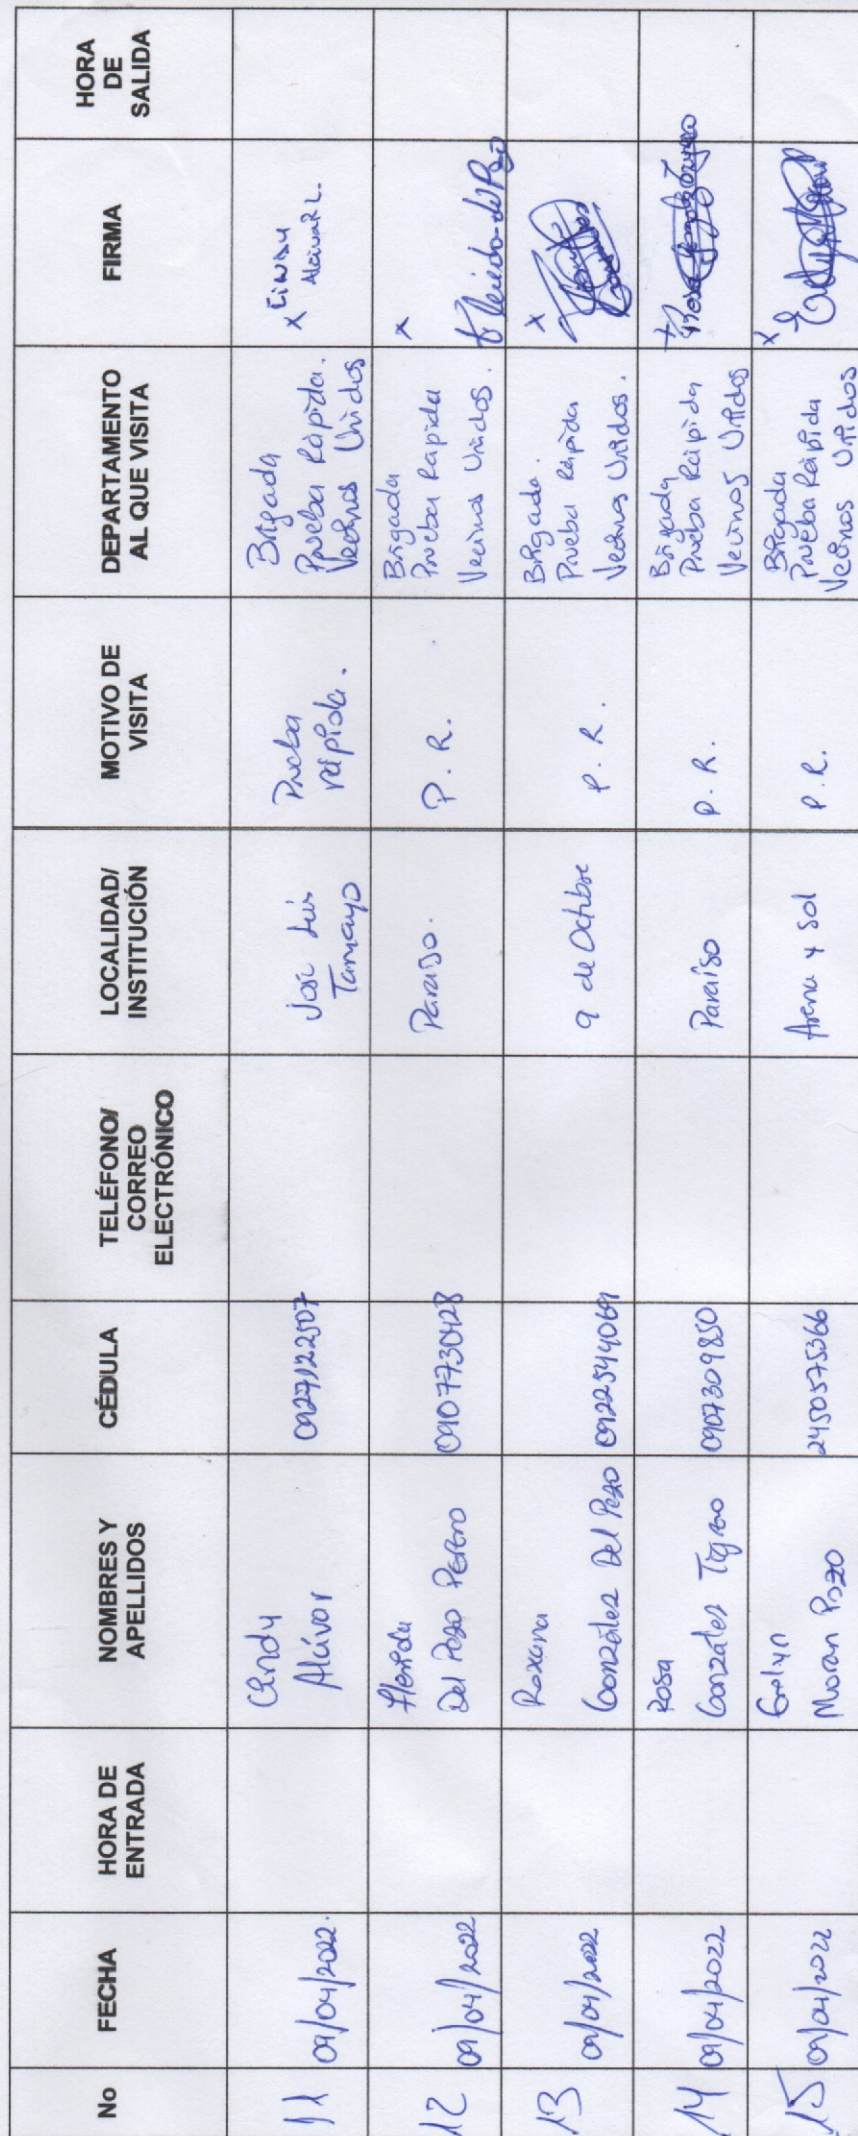 No
FECHA
HORA DE
ENTRADA
NOMBRES Y
APELLIDOS
CÉDULA
TELÉFONO/
CORREO
ELECTRÓNICO
LOCALIDAD/
INSTITUCIÓN
MOTIVO DE
VISITA
DEPARTAMENTO
AL QUE VISITA
FIRMA
HORA
DE
SALIDA
11
09/04/2022.
Cindy
Alcivar
0927122507
José Luis
Tamayo
Prueba
rápida.
Brigada
Prueba Rápida.
Vecinos Unidos
x Cindy
Alcivar L.
12
09/04/2022
Del Pezo
0907730428
Paraíso.
P. R.
Brigada
Prueba Rapida
Vecinos Unidos.
x
13
09/04/2022
Roxana
González Del Pezo
0922544069
9 de Octubre
P. R.
Brigada.
Prueba Rápida
Vecinos Unidos.
x
14
09/04/2022
Rosa
González Tigrero
0907309850
Paraíso
P. R.
Brigada
Prueba Rápida
Vecinos Unidos
15
09/04/2022
Evelyn
Moran Pozo
2450575366
Arena y Sol
P. R.
Brigada
Prueba Rápida
Vecinos Unidos
x